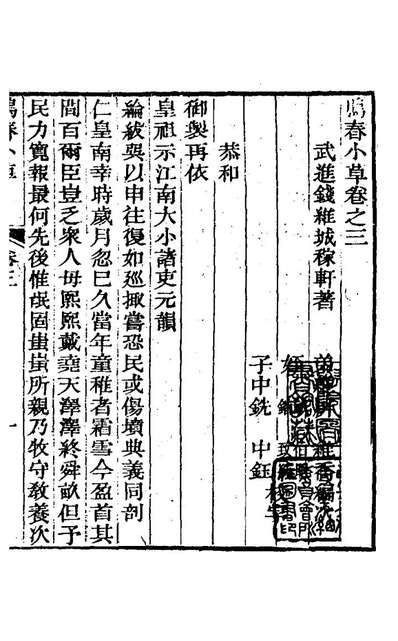 鳴春小草卷之三
武進錢維城稼軒著
子中銑 中鈺
恭和
御製再依
皇祖示江南大小諸吏元韻
綸紱與以申往復如廵掫嘗恐民或傷墳典義同剖
仁皇南幸時歲月忽已久當年童稚者霜雪今盈首其
間百爾臣豈乏衆人母熙熙戴堯天澤澤終舜畝但予
民力寛報最何先後惟氓固蚩蚩所親乃牧守敎養次
鳴春小草
卷三
一